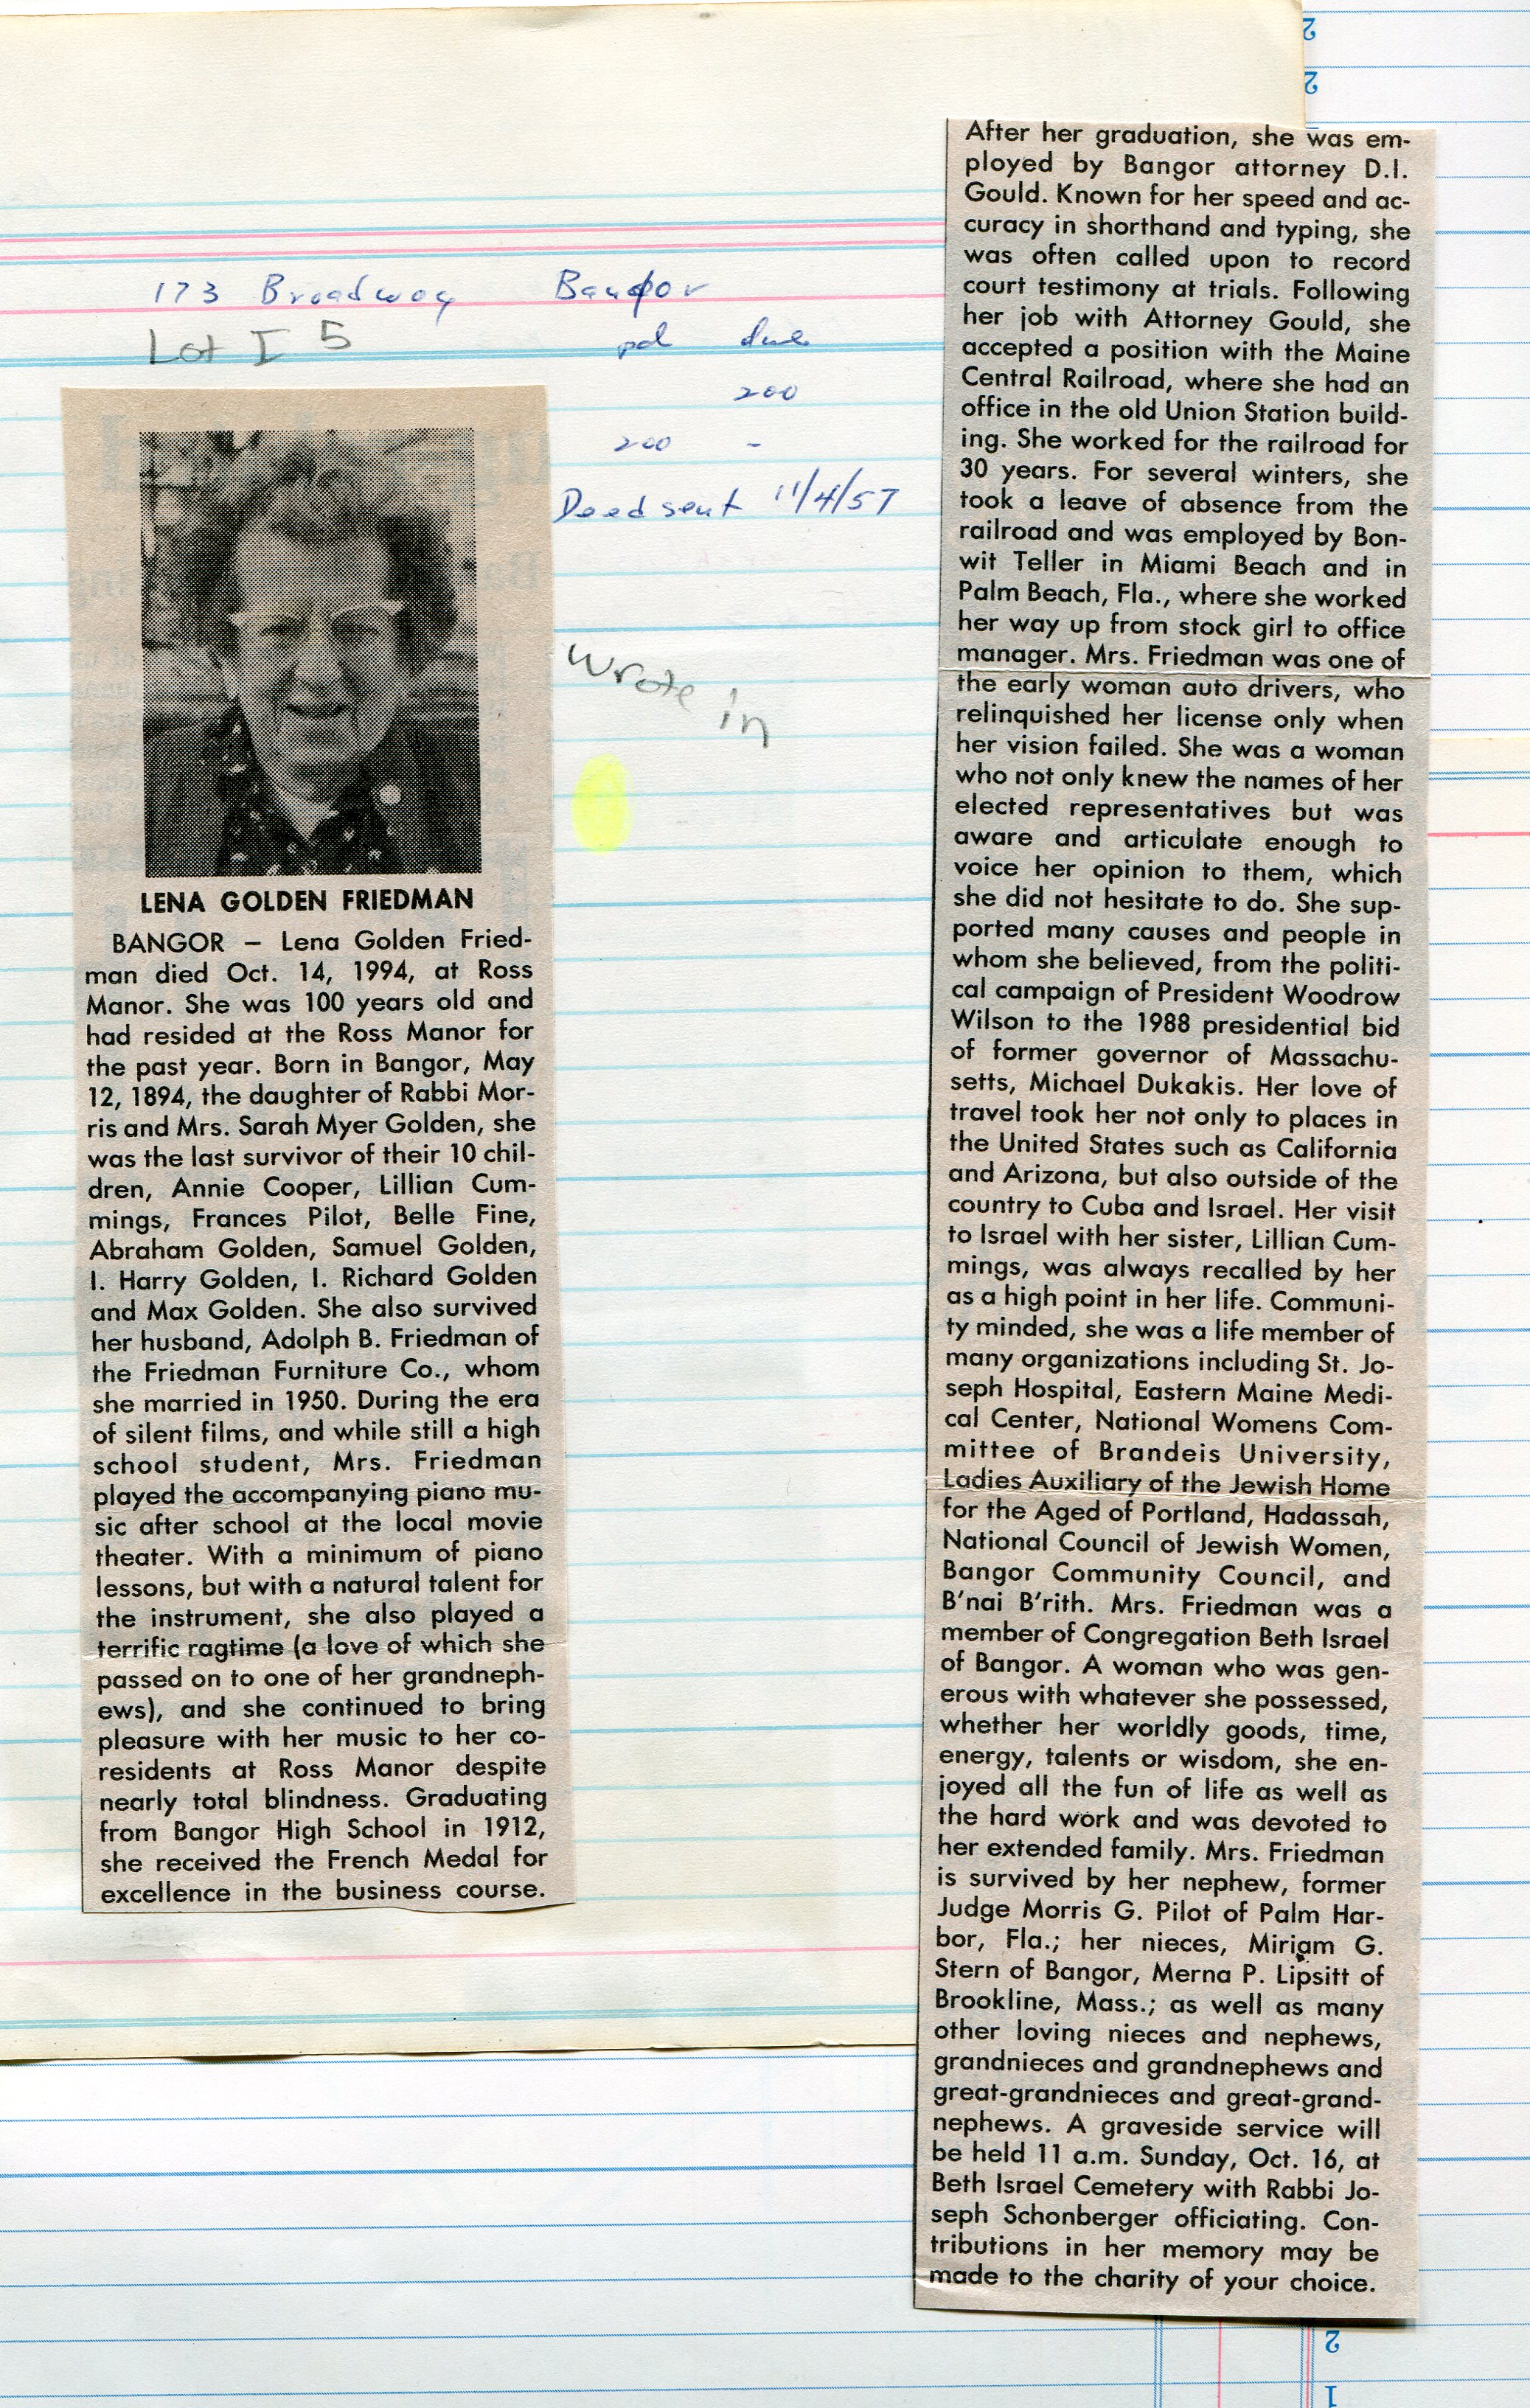 173 Broadway Bangor
Lot I 5
pd due
200
200 -
Deed sent 11/4/57
Wrote in
LENA GOLDEN FRIEDMAN
BANGOR — Lena Golden Fried-
man died Oct. 14, 1994, at Ross
Manor. She was 100 years old and
had resided at the Ross Manor for
the past year. Born in Bangor, May
12, 1894, the daughter of Rabbi Mor-
ris and Mrs. Sarah Myer Golden, she
was the last survivor of their 10 chil-
dren, Annie Cooper, Lillian Cum-
mings, Frances Pilot, Belle Fine,
Abraham Golden, Samuel Golden,
I. Harry Golden, I. Richard Golden
and Max Golden. She also survived
her husband, Adolph B. Friedman of
the Friedman Furniture Co., whom
she married in 1950. During the era
of silent films, and while still a high
school student, Mrs. Friedman
played the accompanying piano mu-
sic after school at the local movie
theater. With a minimum of piano
lessons, but with a natural talent for
the instrument, she also played a
terrific ragtime (a love of which she
passed on to one of her grandneph-
ews), and she continued to bring
pleasure with her music to her co-
residents at Ross Manor despite
nearly total blindness. Graduating
from Bangor High School in 1912,
she received the French Medal for
excellence in the business course.
After her graduation, she was em-
ployed by Bangor attorney D.I.
Gould. Known for her speed and ac-
curacy in shorthand and typing, she
was often called upon to record
court testimony at trials. Following
her job with Attorney Gould, she
accepted a position with the Maine
Central Railroad, where she had an
office in the old Union Station build-
ing. She worked for the railroad for
30 years. For several winters, she
took a leave of absence from the
railroad and was employed by Bon-
wit Teller in Miami Beach and in
Palm Beach, Fla., where she worked
her way up from stock girl to office
manager. Mrs. Friedman was one of
the early woman auto drivers, who
relinquished her license only when
her vision failed. She was a woman
who not only knew the names of her
elected representatives but was
aware and articulate enough to
voice her opinion to them, which
she did not hesitate to do. She sup-
ported many causes and people in
whom she believed, from the politi-
cal campaign of President Woodrow
Wilson to the 1988 presidential bid
of former governor of Massachu-
setts, Michael Dukakis. Her love of
travel took her not only to places in
the United States such as California
and Arizona, but also outside of the
country to Cuba and Israel. Her visit
to Israel with her sister, Lillian Cum-
mings, was always recalled by her
as a high point in her life. Communi-
ty minded, she was a life member of
many organizations including St. Jo-
seph Hospital, Eastern Maine Medi-
cal Center, National Womens Com-
mittee of Brandeis University,
Ladies Auxiliary of the Jewish Home
for the Aged of Portland, Hadassah,
National Council of Jewish Women,
Bangor Community Council, and
B'nai B'rith. Mrs. Friedman was a
member of Congregation Beth Israel
of Bangor. A woman who was gen-
erous with whatever she possessed,
whether her worldly goods, time,
energy, talents or wisdom, she en-
joyed all the fun of life as well as
the hard work and was devoted to
her extended family. Mrs. Friedman
is survived by her nephew, former
Judge Morris G. Pilot of Palm Har-
bor, Fla.; her nieces, Miriam G.
Stern of Bangor, Merna P. Lipsitt of
Brookline, Mass.; as well as many
other loving nieces and nephews,
grandnieces and grandnephews and
great-grandnieces and great-grand-
nephews. A graveside service will
be held 11 a.m. Sunday, Oct. 16, at
Beth Israel Cemetery with Rabbi Jo-
seph Schonberger officiating. Con-
tributions in her memory may be
made to the charity of your choice.
2
2
2
1